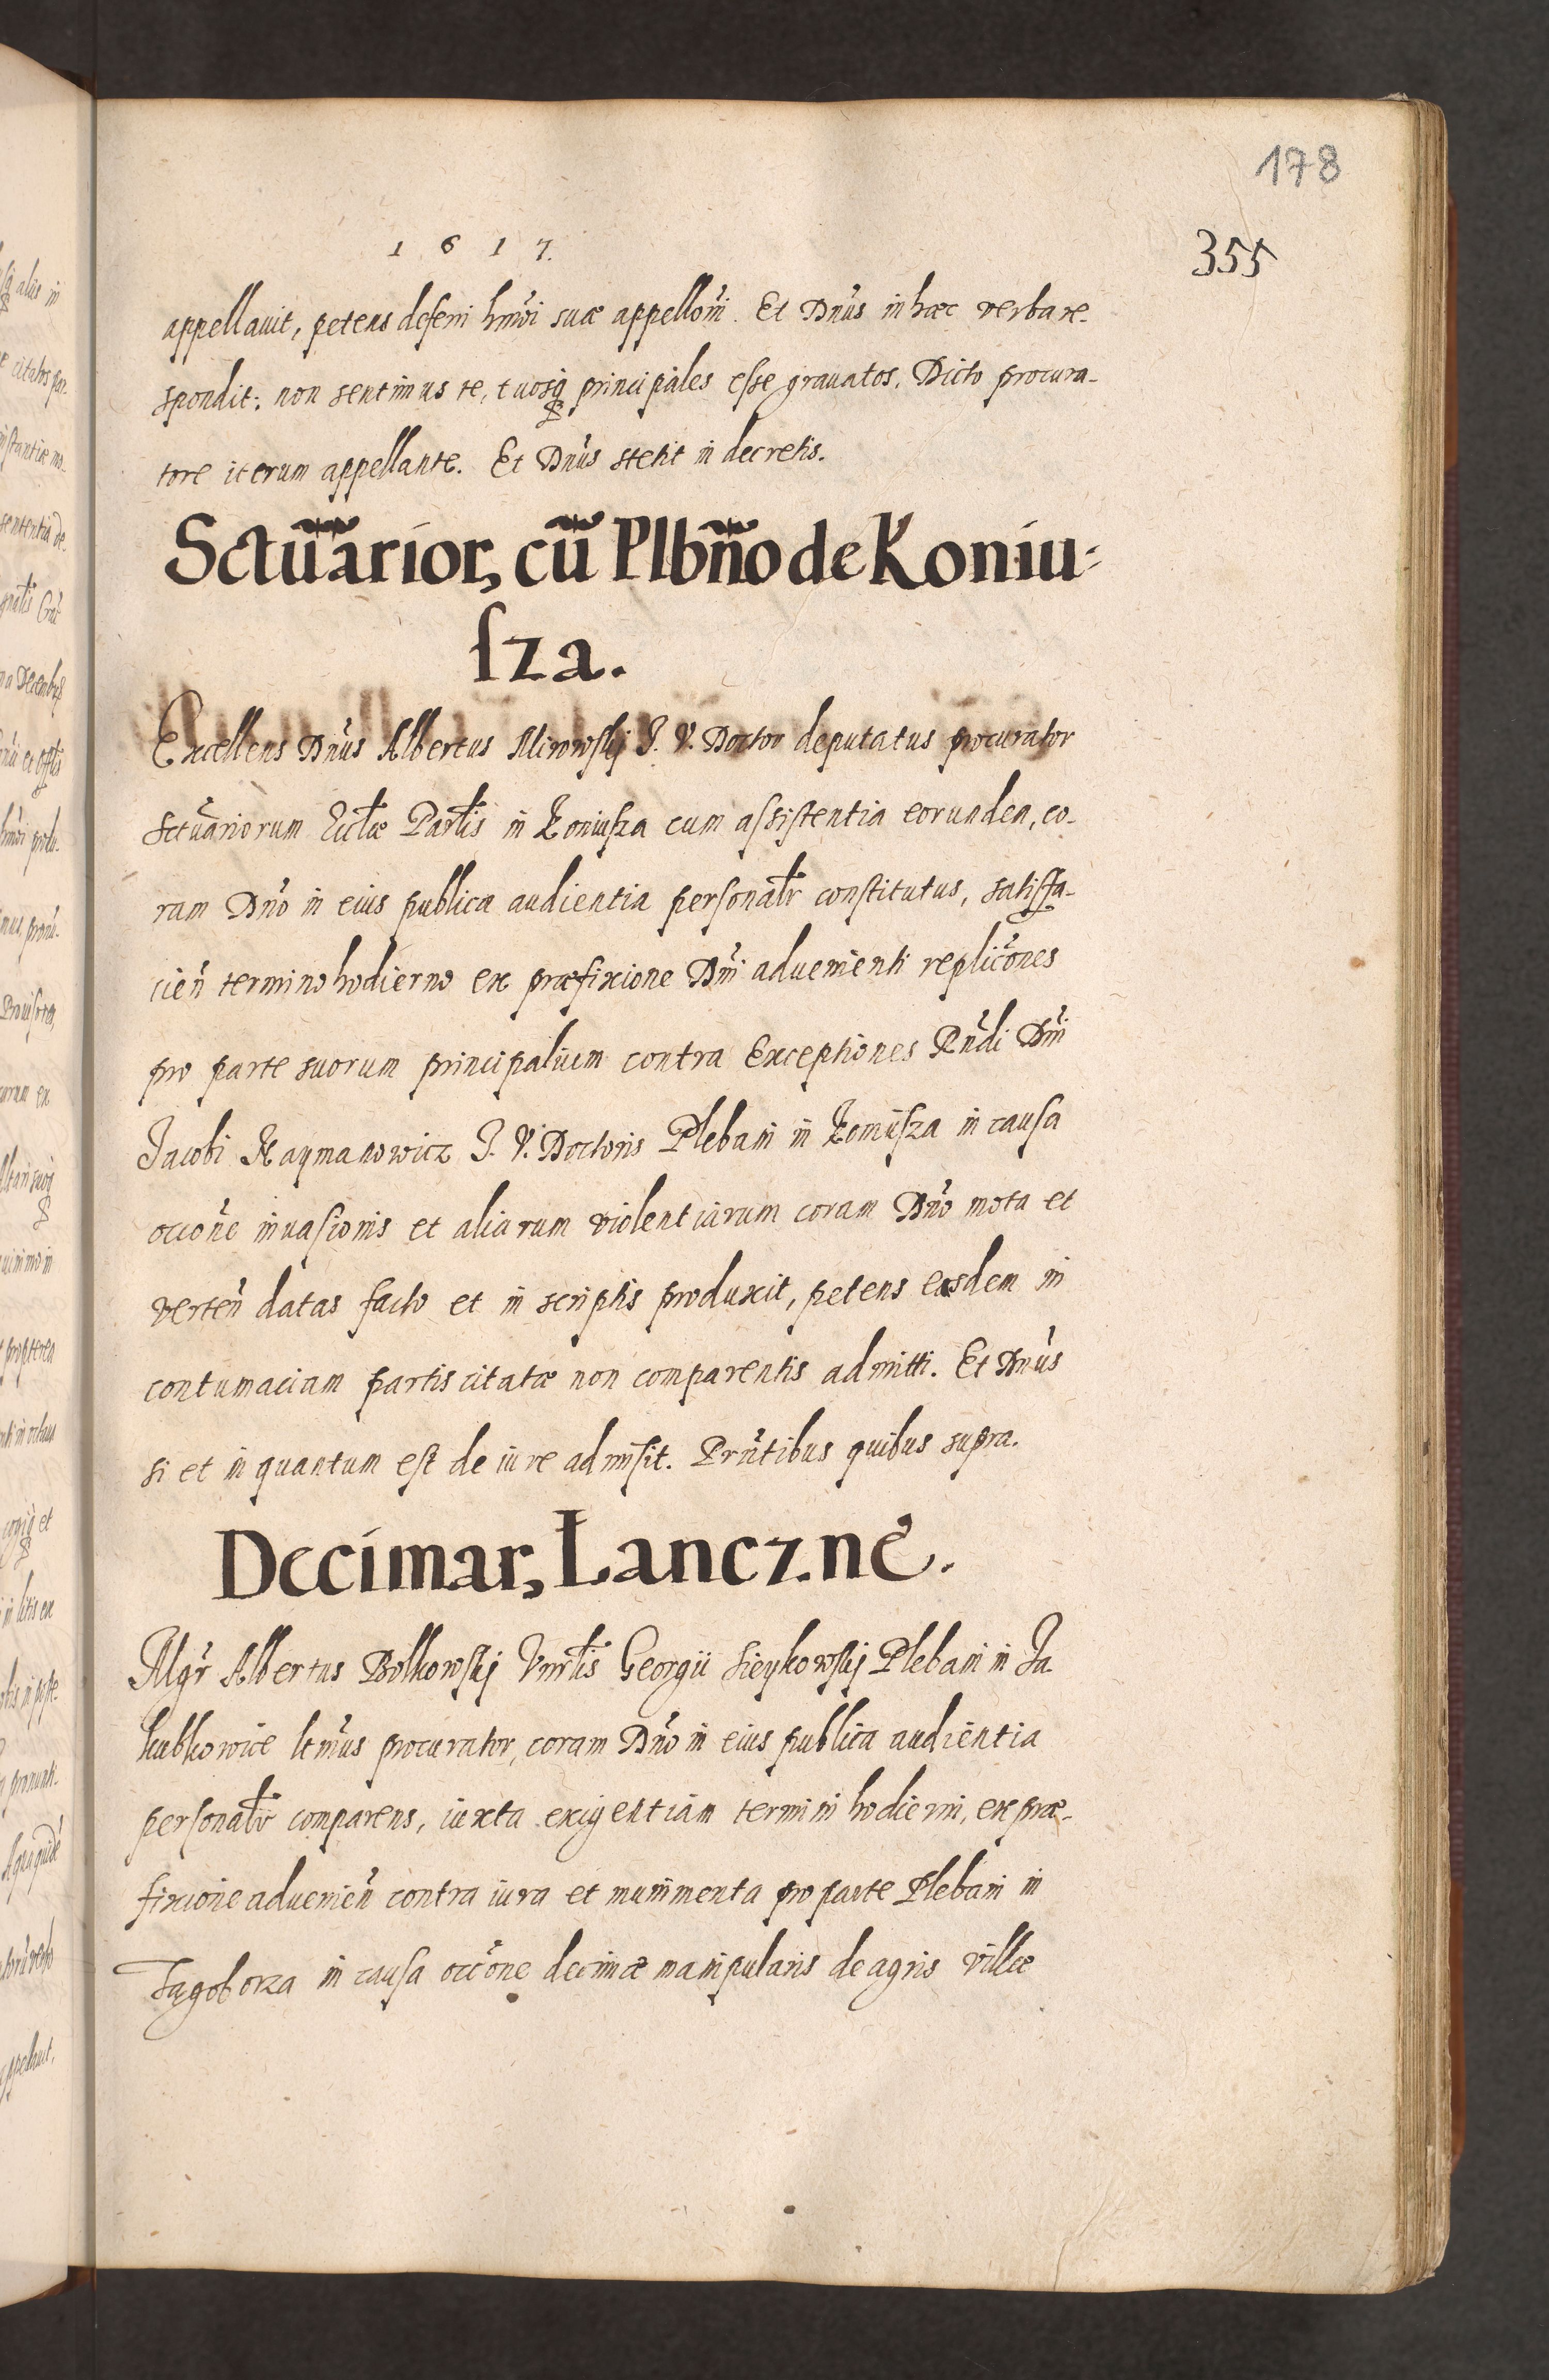 178
1617.
355
appellauit, petens deferri hmõi suæ appellõni. Et Dñus in hæc verba re-
spondit: non sentimus te, tuosq principales esse grauatos. Dicto procura-
tore iterum appellante. Et Dñus stetit in decretis.
Sctũarior, cũ Plbño de Koniu-
sza.
Excellens Dñus Albertus Mirowskj J. V. Doctor deputatus procurator
Sctũariorum Ecłæ Parłis in Koniusza cum assistentia eorundem, co-
ram Dño in eius publica audientia personałr constitutus, satisfa-
cień termino hodierno ex præfixione Dñi aduenienti replicõnes
pro parte suorum principalium contra Exceptiones Rñdi Dñi
Jacobi Naymanowicz J. V. Doctoris Plebani in Koniusza in causa
occõne inuasionis et aliarum violentiarum coram Dño mota et
verteñ datas facto et in scriptis produxit, petens easdem in
contumaciam partis citatæ non comparentis admitti. Et Dñus
si et in quantum est de iure admisit. Prñtibus quibus supra.
Decimar, Łancz.ne.
Mgr Albertus Bolkowskj Vnrłis Georgii Sieykowskj Plebani in Ja
kubkowice ltmus procurator, coram Dño in eius publica audientia
personałr comparens, iuxta exigentiam termini hodierni, ex præ-
fixione aduenień contra iura et munimenta pro parte Plebani in
Tęgoborza in causa occõne decimæ manipularis de agris villæ